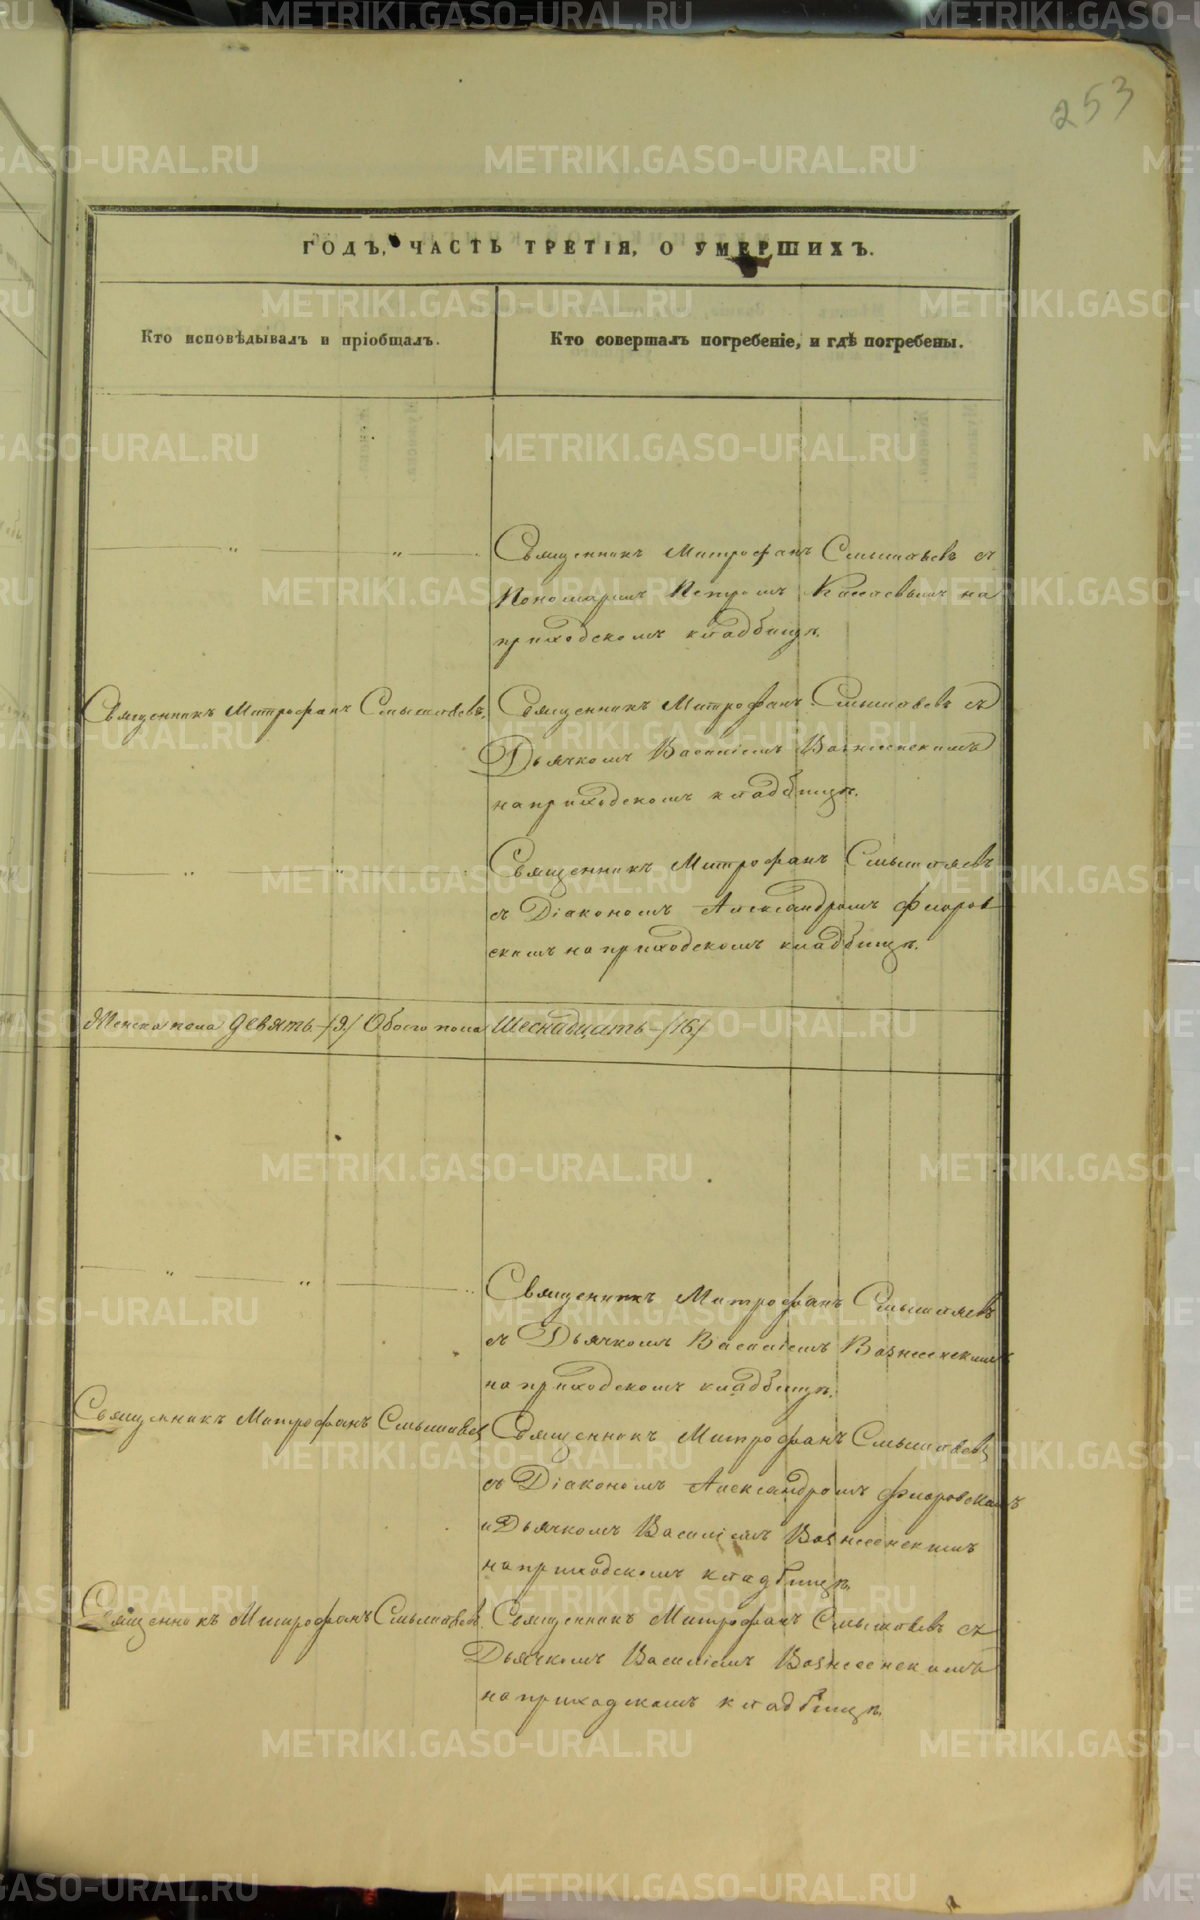 253
ГОДЪ, ЧАСТЬ ТРЕТІЯ, О УМЕРШИХЪ.
Кто исповѣдывалъ и пріобщалъ.
Кто совершалъ погребеніе, и гдѣ погребены.
Священникъ Митрофанъ Смышляевъ съ
Пономаремъ Петромъ на
приходскомъ кладбищѣ.
Священникъ Митрофанъ Смышляевъ.
Священникъ Митрофанъ Смышляевъ съ
Дьячкомъ Василіемъ Вознесенскимъ
на приходскомъ кладбищѣ.
Священникъ Митрофанъ Смышляевъ
съ Діакономъ Александромъ Флоров
скимъ на приходскомъ кладбищѣ.
Женска пола девять /9/ Обоего пола Шеснадцать /16/
Священникъ Митрофанъ Смышляевъ
съ Дьячкомъ Василіемъ Вознесенскимъ
на приходскомъ кладбищѣ.
Священникъ Митрофанъ Смышляевъ
Священникъ Митрофанъ Смышляевъ
съ Діакономъ Александромъ Флоровскимъ
и Дьячкомъ Василіемъ Вознесенскимъ
на приходскомъ кладбищѣ.
Священникъ Митрофанъ Смышляевъ.
Священникъ Митрофанъ Смышляевъ съ
Дьячкомъ Василіемъ Вознесенскимъ
на приходскомъ кладбищѣ.
METRIKI.GASO-URAL.RU